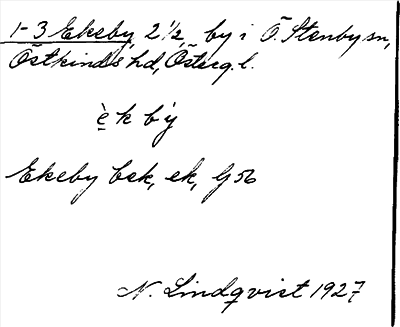 1-3 Ekeby, 2½, by i Ö. Stenby sn,
Östkinds hd, Österg. l.
è k b ý
Ekeby bsk, ek, G 56
N. Lindqvist 1927